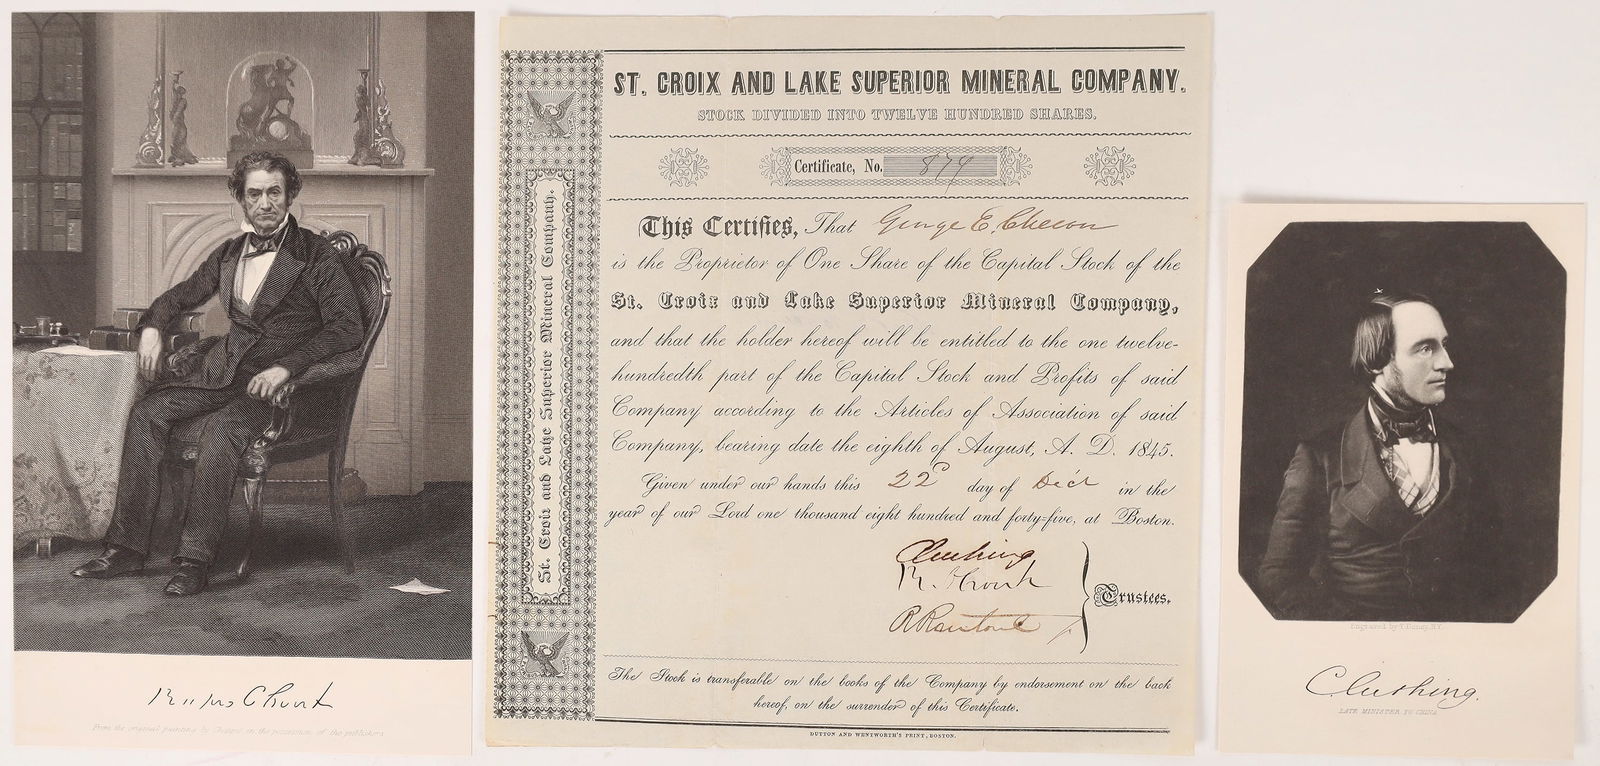 Rufus Choate
From the original painting by Chappel in the possession of the publishers
ST. CROIX AND LAKE SUPERIOR MINERAL COMPANY.
STOCK DIVIDED INTO TWELVE HUNDRED SHARES.
Certificate, No. 879
St. Croix and Lake Superior Mineral Company.
This Certifies, That George E.
is the Proprietor of One Share of the Capital Stock of the
St. Croix and Lake Superior Mineral Company,
and that the holder hereof will be entitled to the one twelve-
hundredth part of the Capital Stock and Profits of said
Company according to the Articles of Association of said
Company, bearing date the eighth of August, A. D. 1845.
Given under our hands this 22d day of Decr in the
year of our Lord one thousand eight hundred and forty-five, at Boston.
C Cushing
R. Choate
R Rantoul Jr
Trustees.
The Stock is transferable on the books of the Company by endorsement on the back
hereof, on the surrender of this Certificate.
DUTTON AND WENTWORTH'S PRINT, BOSTON.
Engraved by T. Doney, N.Y.
C Cushing.
LATE MINISTER TO CHINA